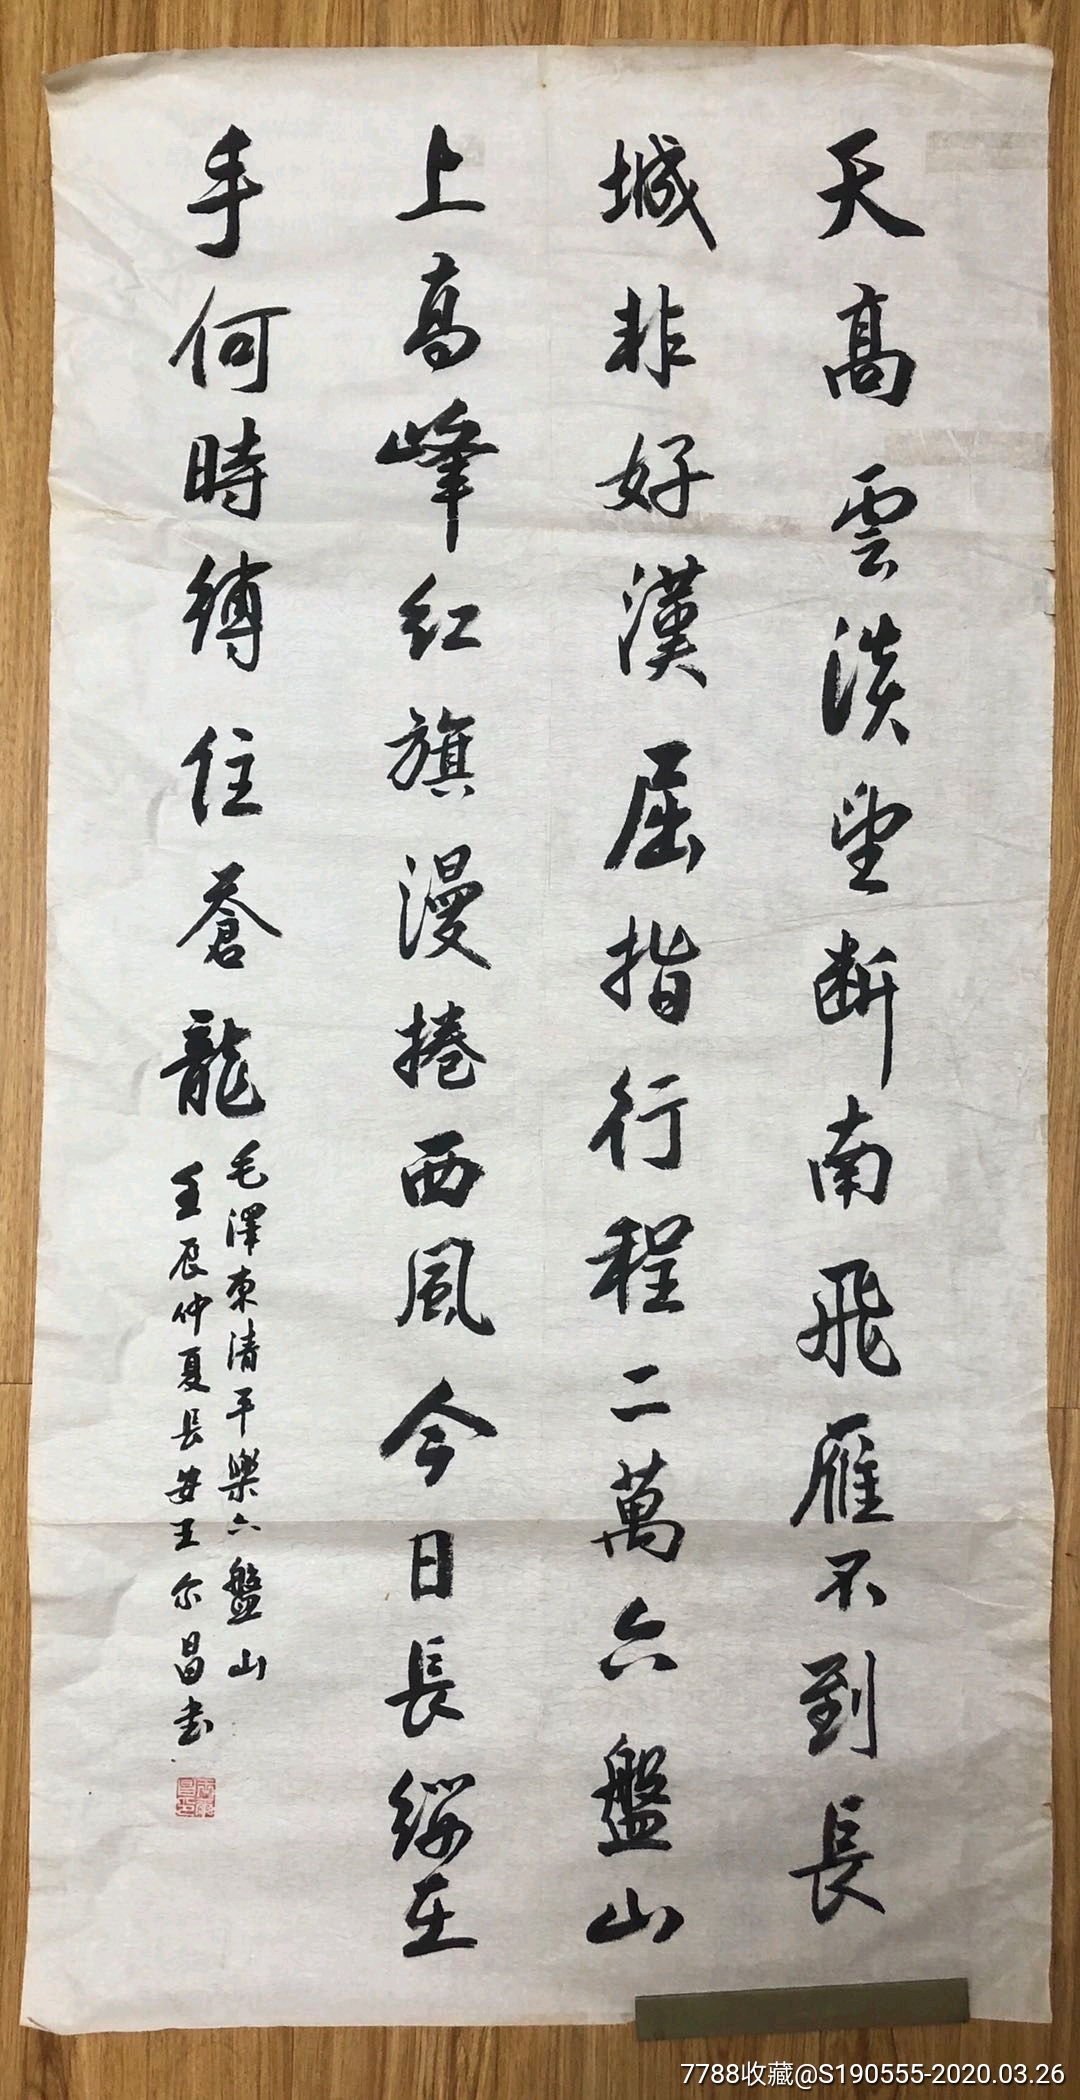 天高雲淡望断南飛雁不到長
城非好漢屈指行程二萬六盤山
上高峰红旗漫捲西風今日長纓在
手何時縛住蒼龍
毛澤東清平樂六盤山
壬辰仲夏長安王尔昌书
7788收藏@S190555-2020.03.26